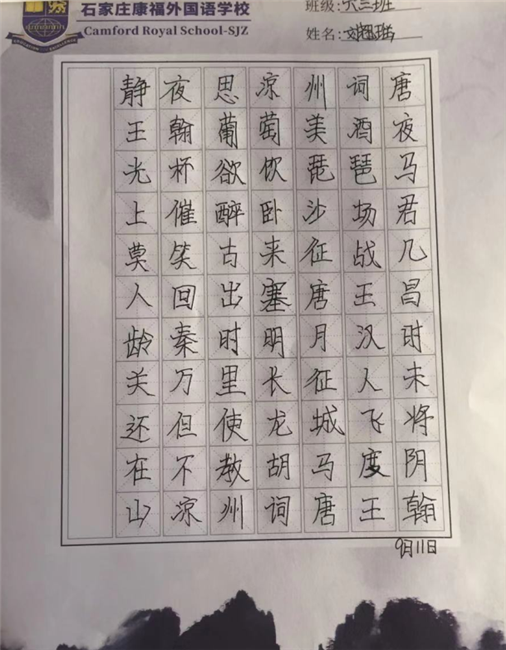 石家庄康福外国语学校
Camford Royal School-SJZ
班级:六三班
姓名:
静夜思凉州词唐
王翰葡萄美酒夜
光杯欲饮琵琶马
上催醉卧沙场君
莫笑古来征战几
人回出塞唐王昌
龄秦时明月汉时
关万里长征人未
还但使龙城飞将
在不教胡马度阴
山凉州词唐王翰
9月11日